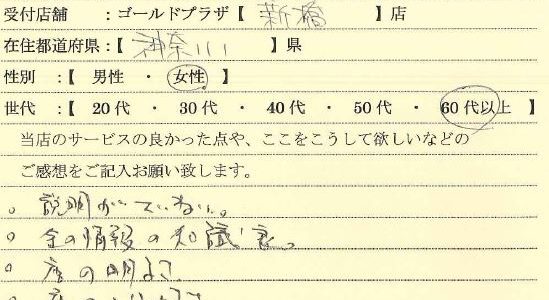 受付店舗 :ゴールドプラザ【 新橋 】店
在住都道府県:【 神奈川 】県
性別 :【 男性 ・ 女性 】
世代 :【 20代 ・ 30代 ・ 40代 ・ 50代 ・ 60代以上 】
当店のサービスの良かった点や、ここをこうして欲しいなどの
ご感想をご記入お願い致します。
。説明がていねい。
。金の情報の知識
。店の明るさ